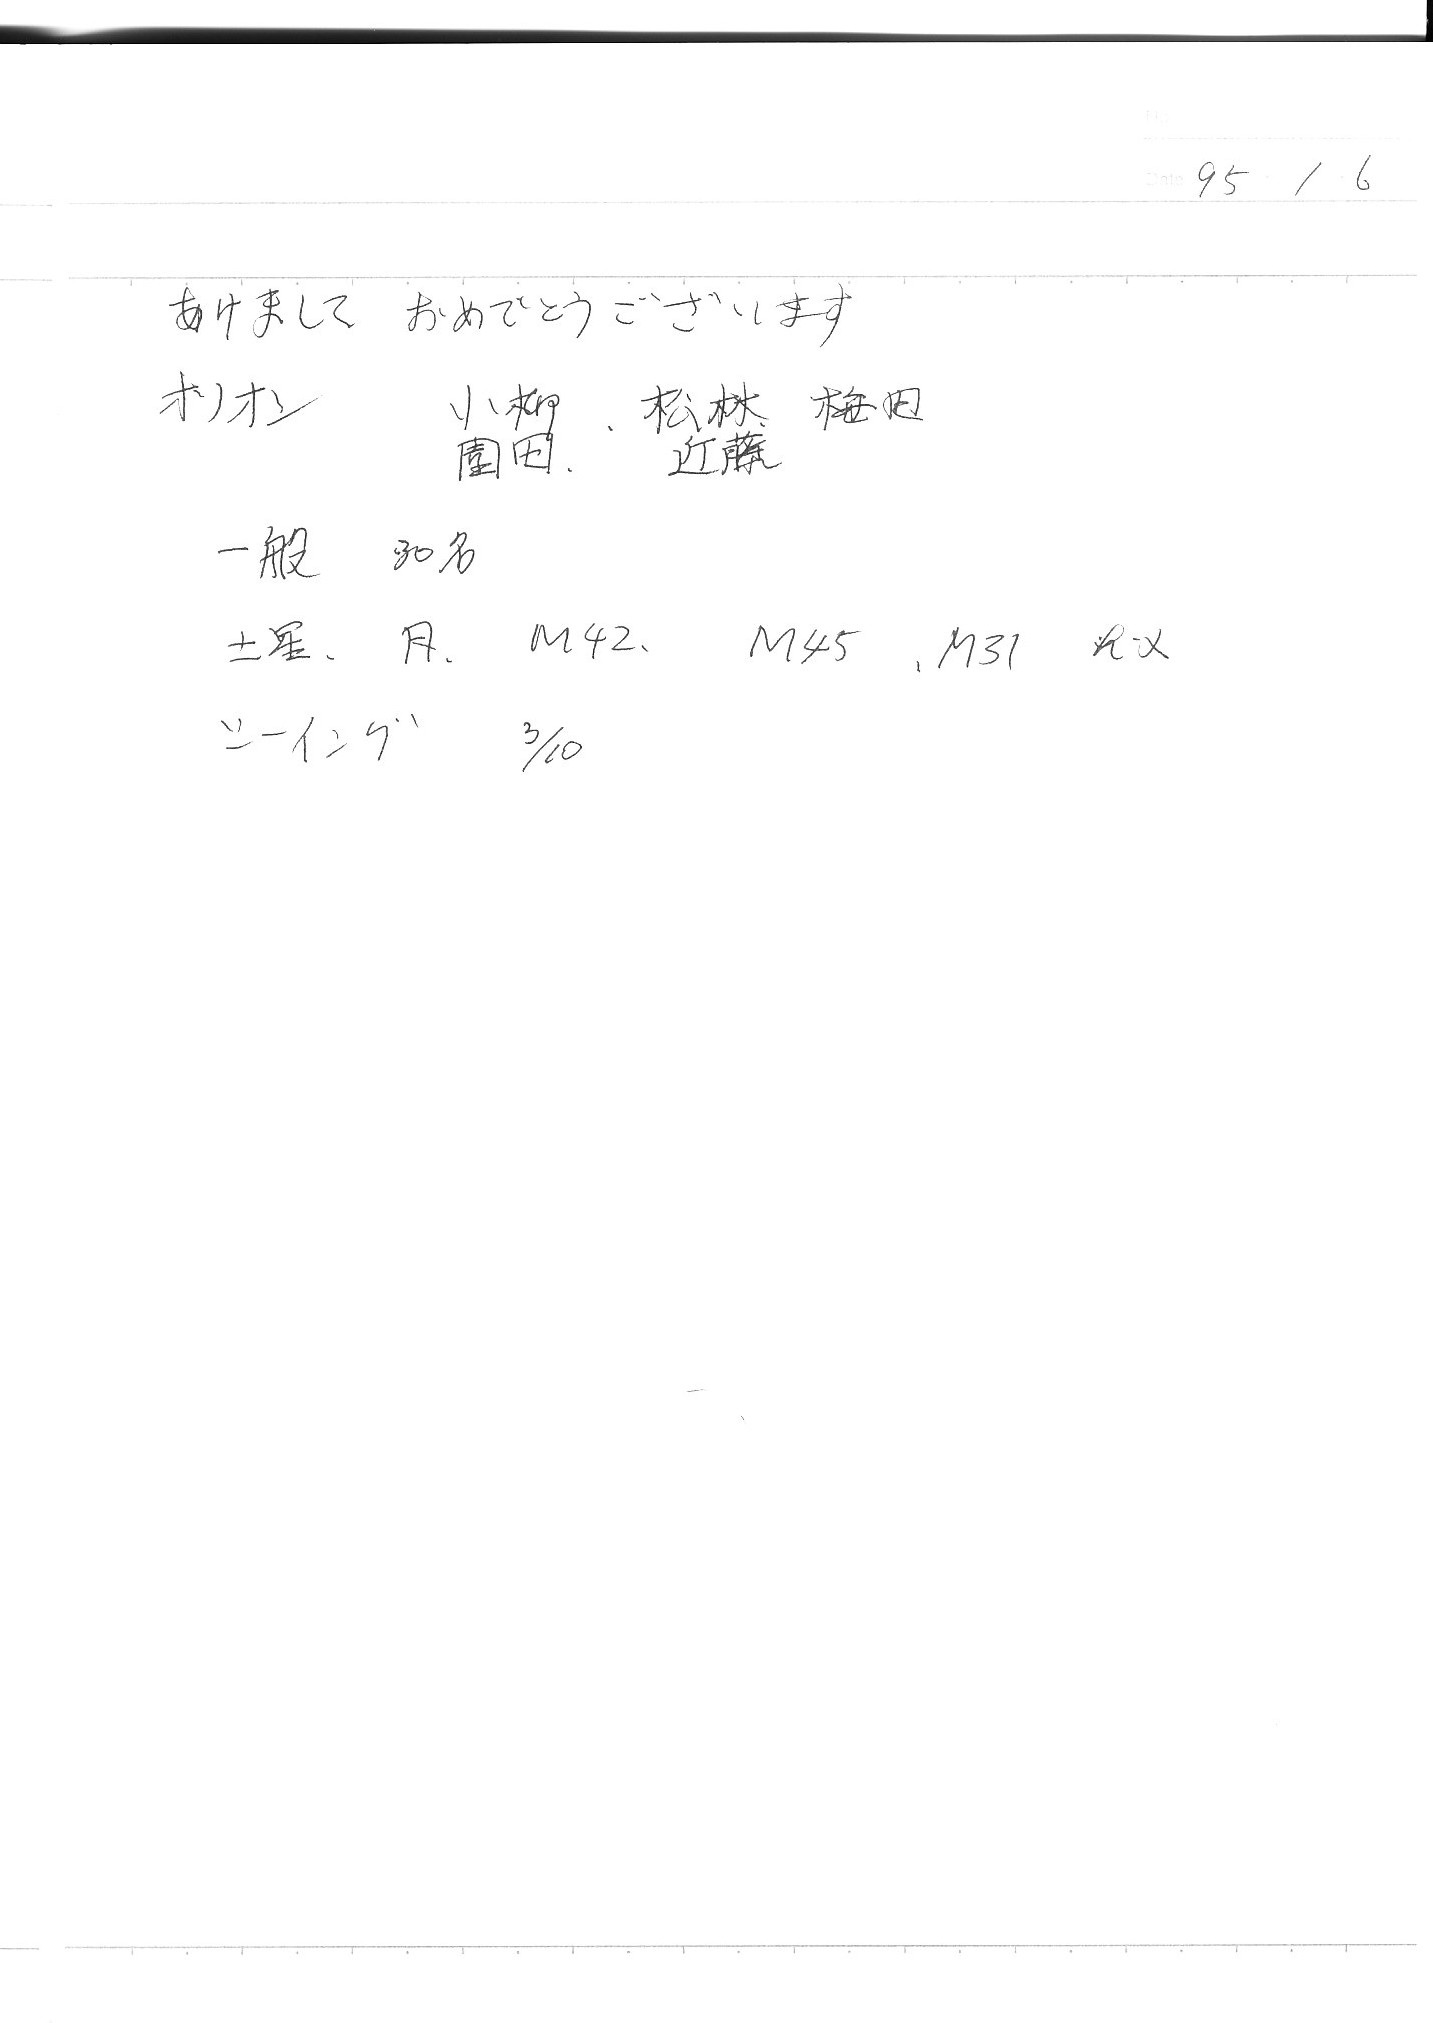 Date 95 1 6
あけまして おめでとうございます
オリオン 小柳、松林、梅田
園田、近藤
一般 30名
土星、月、M42、M45、M31
シーイング 3/10